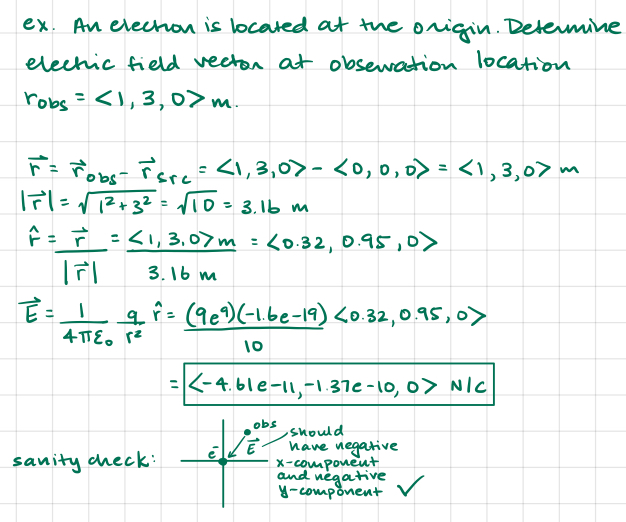 ex. An electron is located at the origin. Determine
electric field vector at observation location
r_obs = <1, 3, 0> m.
r⃗ = r⃗_obs - r⃗_src = <1, 3, 0> - <0, 0, 0> = <1, 3, 0> m
|r⃗| = √(1² + 3²) = √10 = 3.16 m
r̂ = r⃗ / |r⃗| = <1, 3, 0> m / 3.16 m = <0.32, 0.95, 0>
E⃗ = 1/(4πε₀) q/r² r̂ = (9e9)(-1.6e-19)/10 <0.32, 0.95, 0>
= <-4.61e-11, -1.37e-10, 0> N/C
sanity check:
obs
e⁻
E⃗
should
have negative
x-component
and negative
y-component ✓